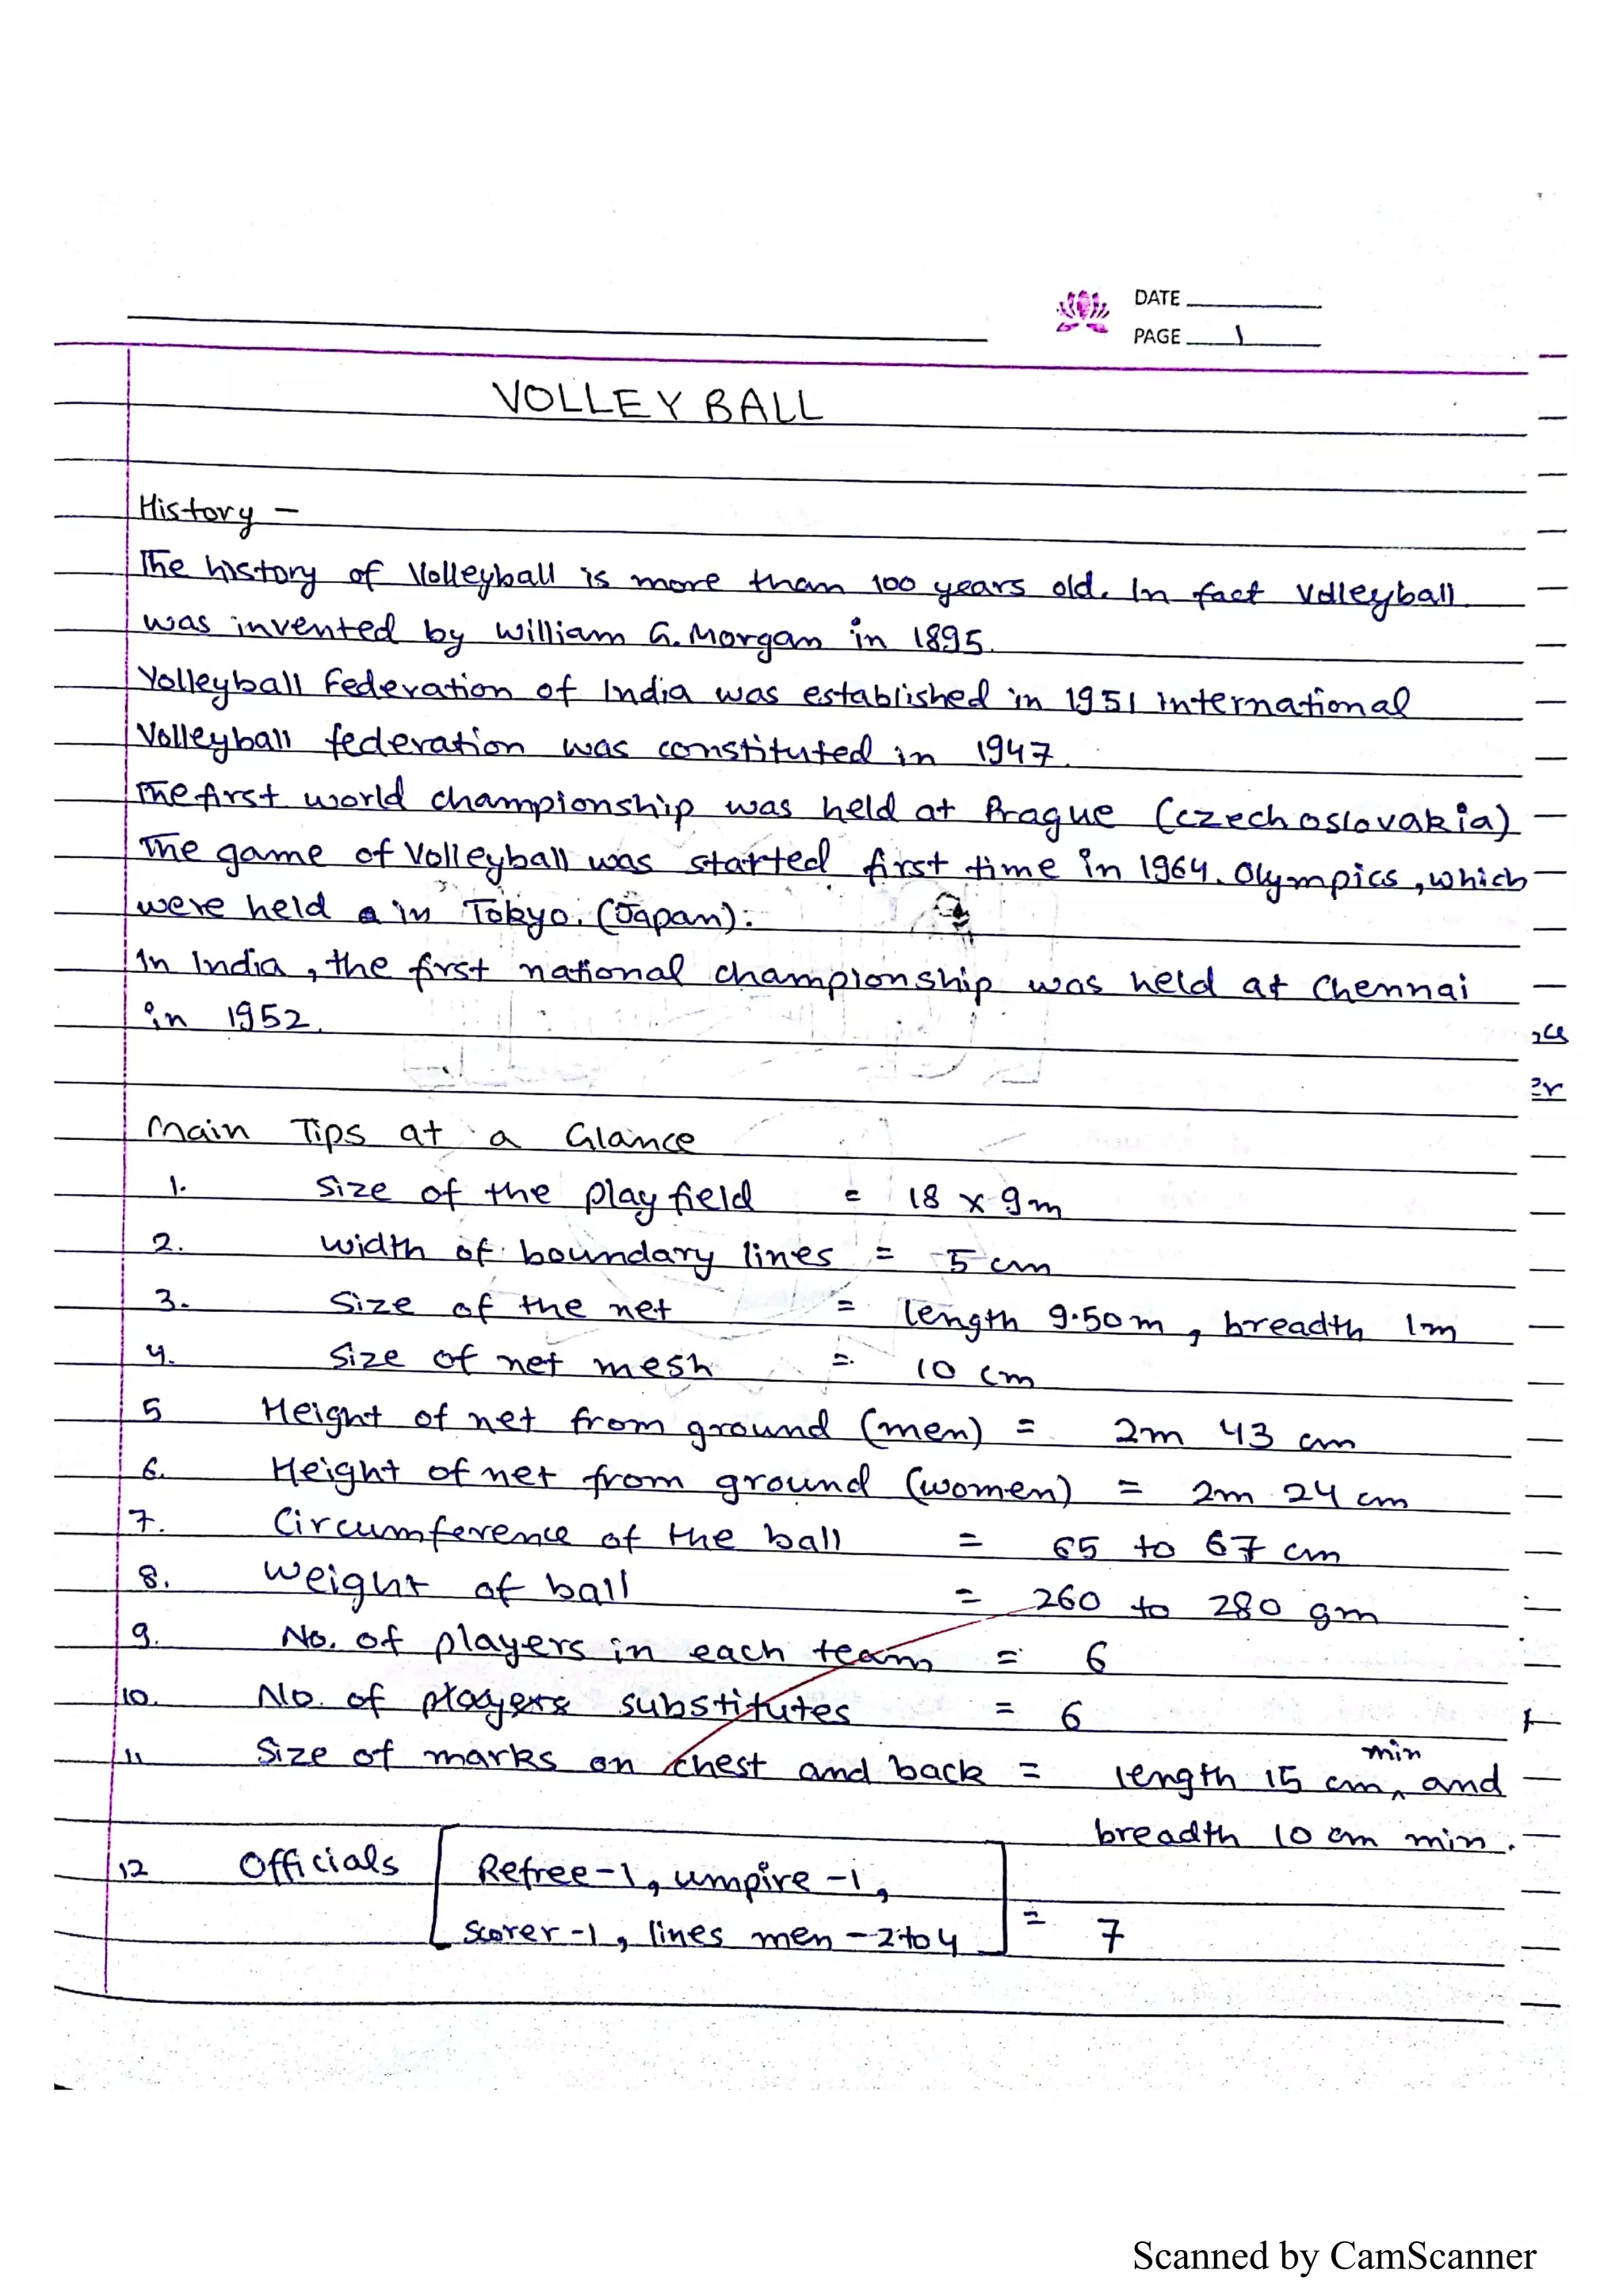 DATE
PAGE 1
VOLLEY BALL
History -
The history of Volleyball is more than 100 years old. In fact Volleyball
was invented by William G. Morgan in 1895.
Volleyball Federation of India was established in 1951 international
Volleyball federation was constituted in 1947.
The first world championship was held at Prague (czechoslovakia)
The game of Volleyball was started first time in 1964. Olympics, which
were held in Tokyo. (Japan).
In India, the first national championship was held at Chennai
in 1952.
Main Tips at a Glance
1. Size of the play field = 18 x 9m
2. width of boundary lines = 5 cm
3. Size of the net = length 9.50 m, breadth 1m
4. Size of net mesh = 10 cm
5 Height of net from ground (men) = 2m 43 cm
6. Height of net from ground (women) = 2m 24 cm
7. Circumference of the ball = 65 to 67 cm
8. Weight of ball = 260 to 280 gm
9. No. of players in each team = 6
10. No. of players substitutes = 6
11 Size of marks on chest and back = length 15 cm min and
breadth 10 cm min.
12 Officials [Refree-1, umpire-1,
Scorer-1, lines men-2 to 4] = 7
Scanned by CamScanner